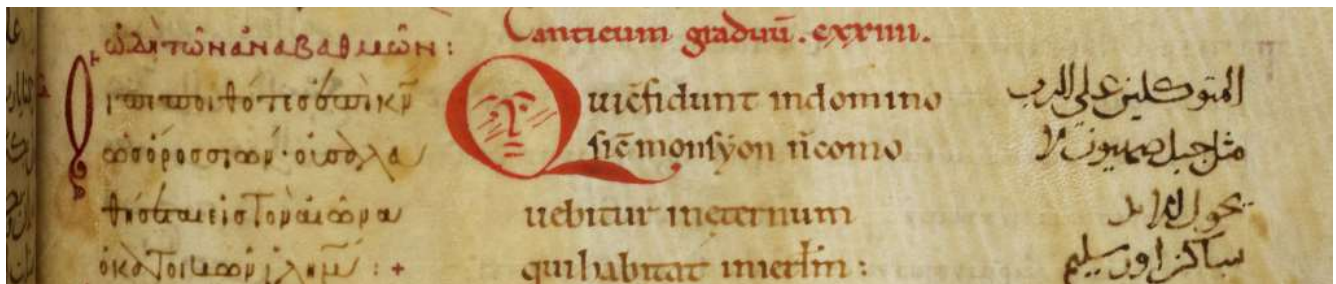 ωδι τῶν ἀναβαθμῶν:
Οι πεποιθότεσ επι κν̄
ωσ όροσ σιων· οι σαλευ
θησεται εισ τον αιωνα
ο κατοικων ιλημ̄ : +
Canticum graduū. cxxiiii.
Qui cfidunt in domino
sic̄ mons syon n̄ como
uebitur in eternum
qui habitat in ierlm̄ :
المتوكلين على الرب
مثل جبل صهيون لا
يحول للابد
ساكن اورسليم